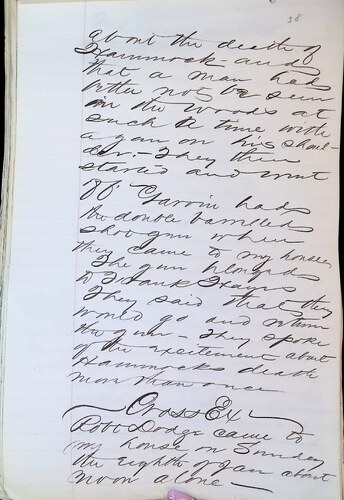 38
about the death of
Hammock - and
that a man had
better not be seen
in the woods at
such a time with
a gun on his shoul-
der. - They then
started and went
off. Garvin had
the double barrelled
shot gun when
they came to my house
The gun belongs
to Frank Hayes
They said that they
would go and return
the gun - They spoke
of the excitement about
Hammocks death
more than once
Cross Ex
Robt Dodge came to
my house on Sunday
the eighth of Jan about
noon alone -